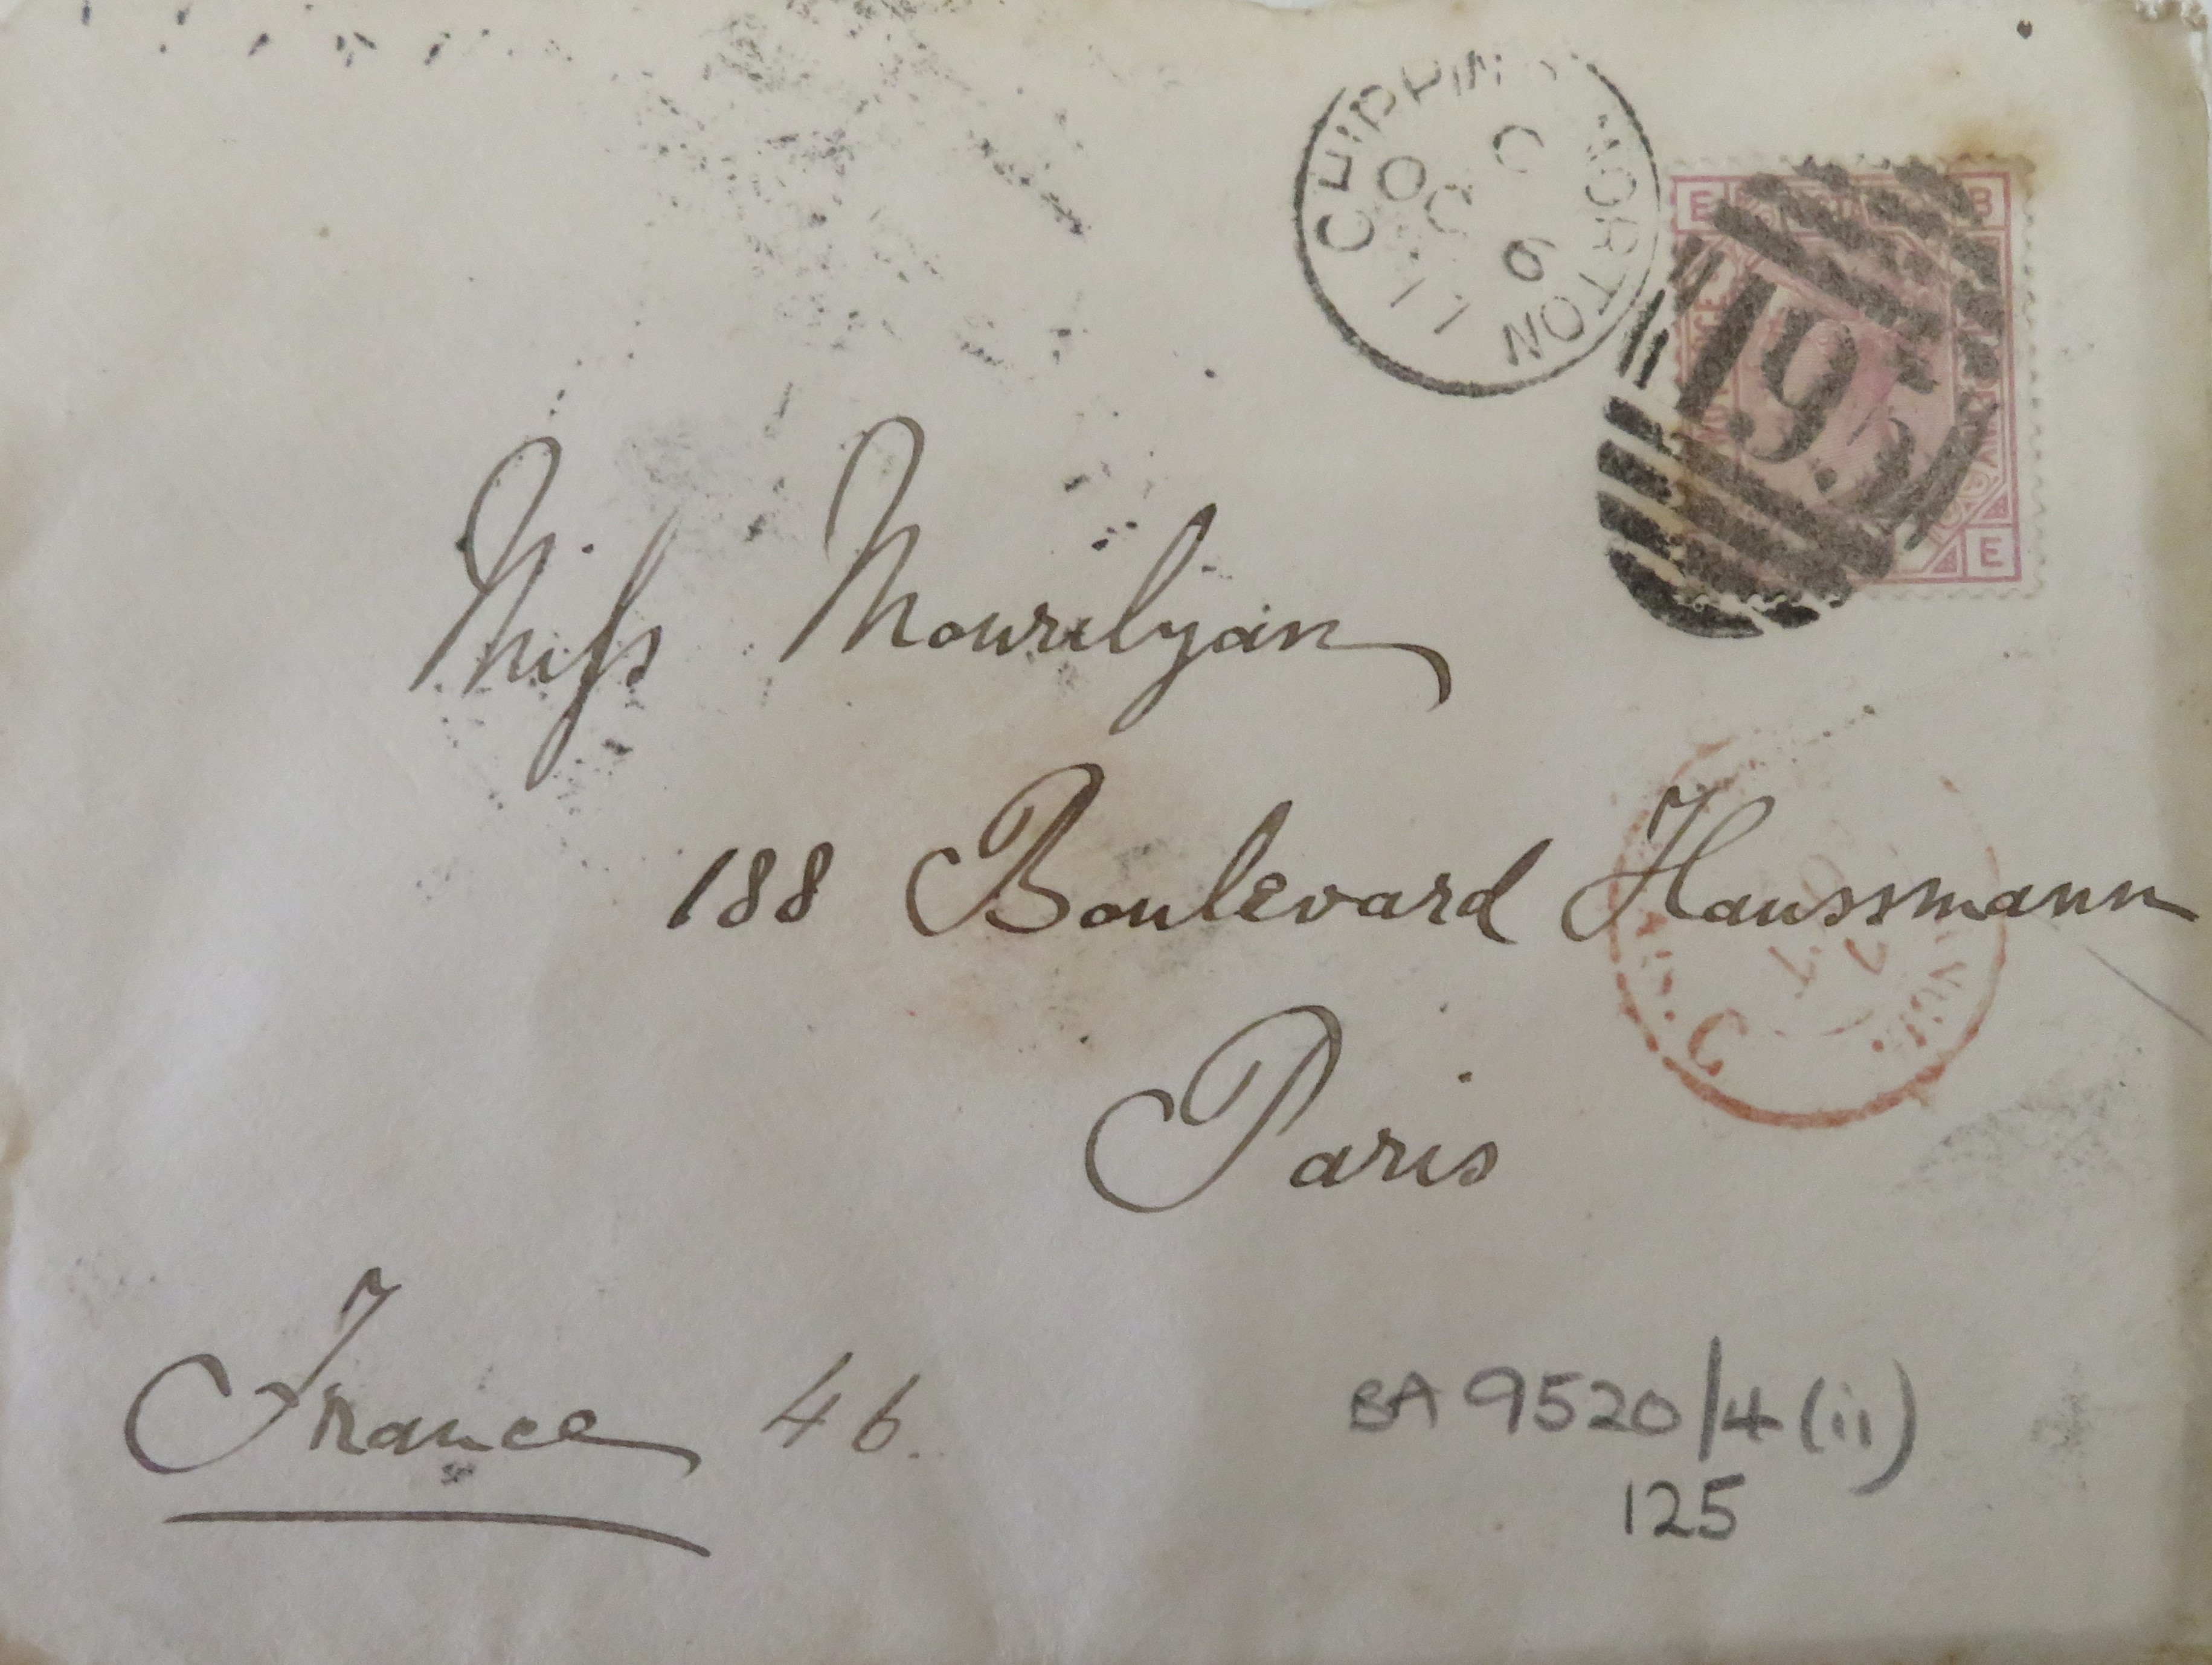 CHIPPING NORTON
C
OC 6
77
E B
195
E
Miss Mourilyan
188 Boulevard Haussmann
Paris
France 46.
BA 9520/4 (ii)
125